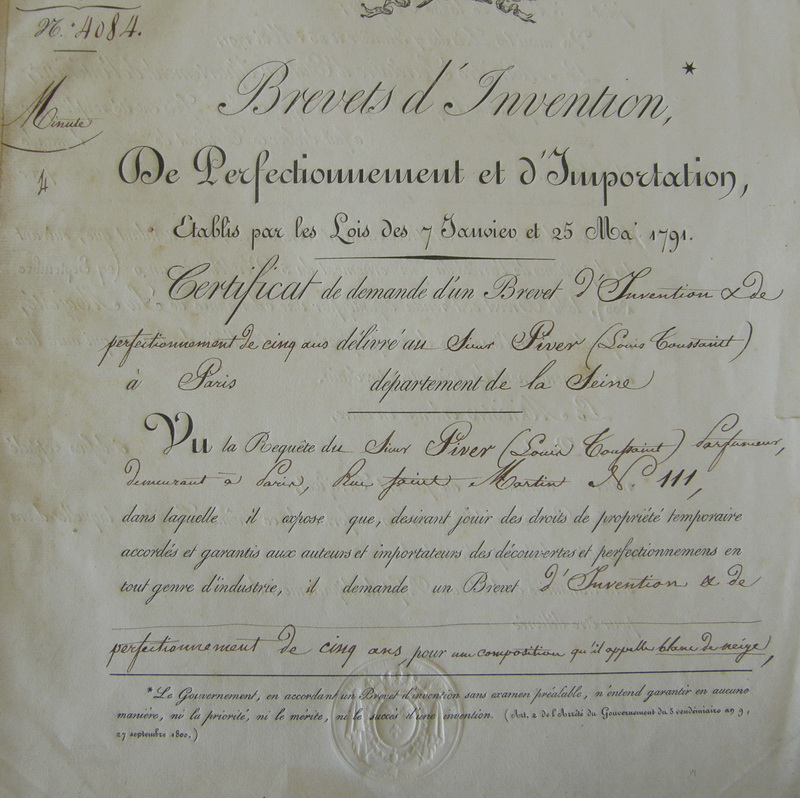 N.º 4084.
Minute
Brevets d'Invention,*
De Perfectionnement et d'Importation,
Etablis par les Lois des 7 Janvier et 25 Mai 1791.
Certificat de demande d'un Brevet d'Invention & de
perfectionnement de cinq ans délivré au Sieur Piver (Louis Toussaint)
à Paris département de la Seine
Vu la Requête du Sieur Piver (Louis Toussaint) Parfumeur,
demeurant à Paris, Rue Saint Martin N.º 111,
dans laquelle il expose que, desirant jouir des droits de propriété temporaire
accordés et garantis aux auteurs et importateurs des découvertes et perfectionnemens en
tout genre d'industrie, il demande un Brevet d'Invention & de
perfectionnement de cinq ans, pour une composition qu'il appelle blanc de neige,
* Le Gouvernement, en accordant un Brevet d'invention sans examen préalable, n'entend garantir en aucune
manière, ni la priorité, ni le mérite, ni le succès d'une invention. (Art. 2 de l'Arrêté du Gouvernement du 5 vendémiaire an 9,
27 septembre 1800.)